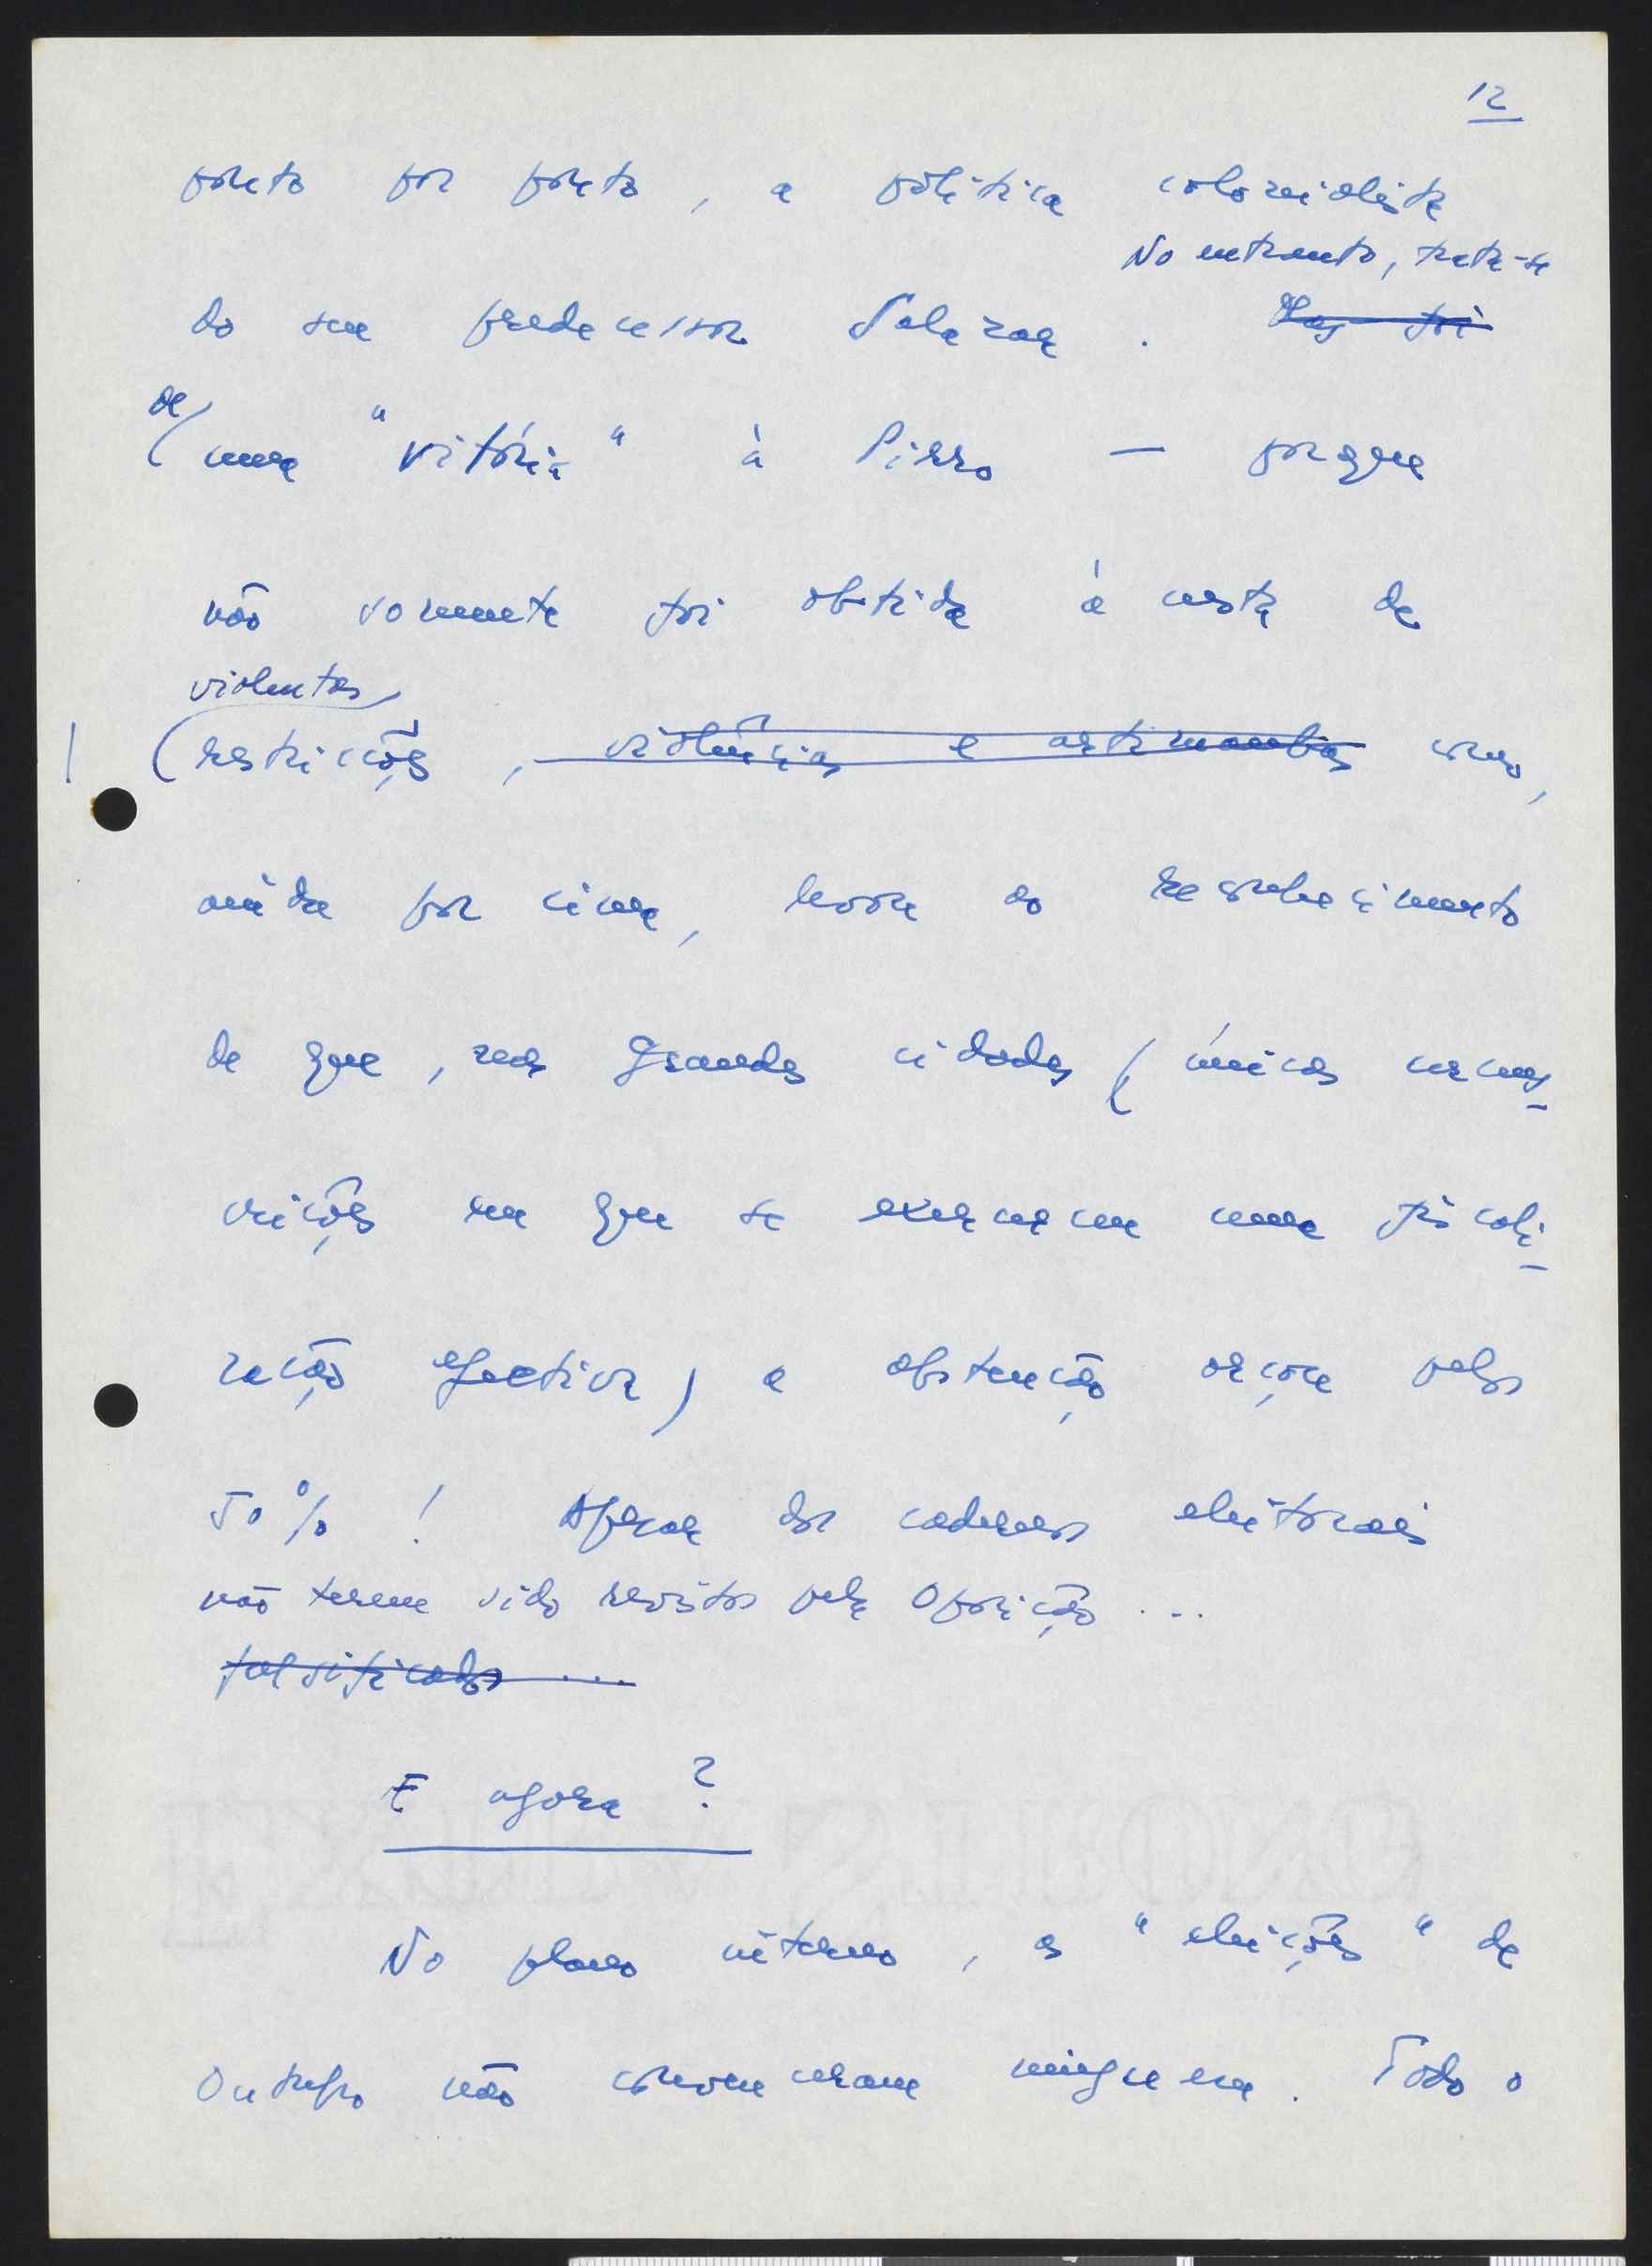 12
ponto por ponto, a política colonialista
No entanto, trata-se
do seu predecessor Salazar. Mas foi
de
uma "vitória" à Pirro — porque
não somente foi obtida à custa de
violentas
restrições, violências e artimanhas como,
ainda por cima, houve o reconhecimento
de que, nas grandes cidades (únicas circuns-
crições em que se exerceram uma fiscali-
zação efectiva) a abstenção orçou pelos
50% ! Apesar dos cadernos eleitorais
não terem sido revistos pela Oposição...
falsificados ...
E agora ?
No plano interno, as "eleições" de
Outubro não convenceram ninguém. Todo o